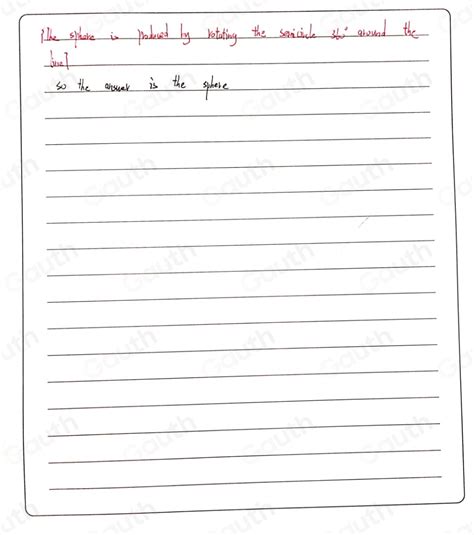 [the sphere is produced by rotating the semicircle 360° around the
line]
so the answer is the sphere
Gauth